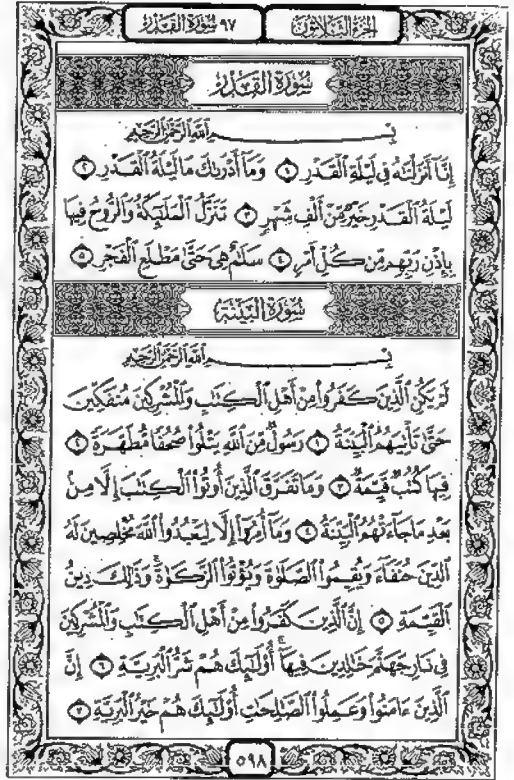 الجزء الثلاثون ٩٧ سورة القدر
سُورَةُ الْقَدْرِ
بِسْمِ اللَّهِ الرَّحْمَٰنِ الرَّحِيمِ
إِنَّآ أَنزَلْنَٰهُ فِى لَيْلَةِ ٱلْقَدْرِ ١ وَمَآ أَدْرَىٰكَ مَا لَيْلَةُ ٱلْقَدْرِ ٢
لَيْلَةُ ٱلْقَدْرِ خَيْرٌ مِّنْ أَلْفِ شَهْرٍ ٣ تَنَزَّلُ ٱلْمَلَٰٓئِكَةُ وَٱلرُّوحُ فِيهَا
بِإِذْنِ رَبِّهِم مِّن كُلِّ أَمْرٍ ٤ سَلَٰمٌ هِىَ حَتَّىٰ مَطْلَعِ ٱلْفَجْرِ ٥
سُورَةُ الْبَيِّنَةِ
بِسْمِ اللَّهِ الرَّحْمَٰنِ الرَّحِيمِ
لَمْ يَكُنِ ٱلَّذِينَ كَفَرُوا۟ مِنْ أَهْلِ ٱلْكِتَٰبِ وَٱلْمُشْرِكِينَ مُنفَكِّينَ
حَتَّىٰ تَأْتِيَهُمُ ٱلْبَيِّنَةُ ١ رَسُولٌ مِّنَ ٱللَّهِ يَتْلُوا۟ صُحُفًا مُّطَهَّرَةً ٢
فِيهَا كُتُبٌ قَيِّمَةٌ ٣ وَمَا تَفَرَّقَ ٱلَّذِينَ أُوتُوا۟ ٱلْكِتَٰبَ إِلَّا مِنۢ
بَعْدِ مَا جَآءَتْهُمُ ٱلْبَيِّنَةُ ٤ وَمَآ أُمِرُوٓا۟ إِلَّا لِيَعْبُدُوا۟ ٱللَّهَ مُخْلِصِينَ لَهُ
ٱلدِّينَ حُنَفَآءَ وَيُقِيمُوا۟ ٱلصَّلَوٰةَ وَيُؤْتُوا۟ ٱلزَّكَوٰةَ ۚ وَذَٰلِكَ دِينُ
ٱلْقَيِّمَةِ ٥ إِنَّ ٱلَّذِينَ كَفَرُوا۟ مِنْ أَهْلِ ٱلْكِتَٰبِ وَٱلْمُشْرِكِينَ
فِى نَارِ جَهَنَّمَ خَٰلِدِينَ فِيهَآ ۚ أُو۟لَٰٓئِكَ هُمْ شَرُّ ٱلْبَرِيَّةِ ٦ إِنَّ
ٱلَّذِينَ ءَامَنُوا۟ وَعَمِلُوا۟ ٱلصَّٰلِحَٰتِ أُو۟لَٰٓئِكَ هُمْ خَيْرُ ٱلْبَرِيَّةِ ٧
٥٩٨